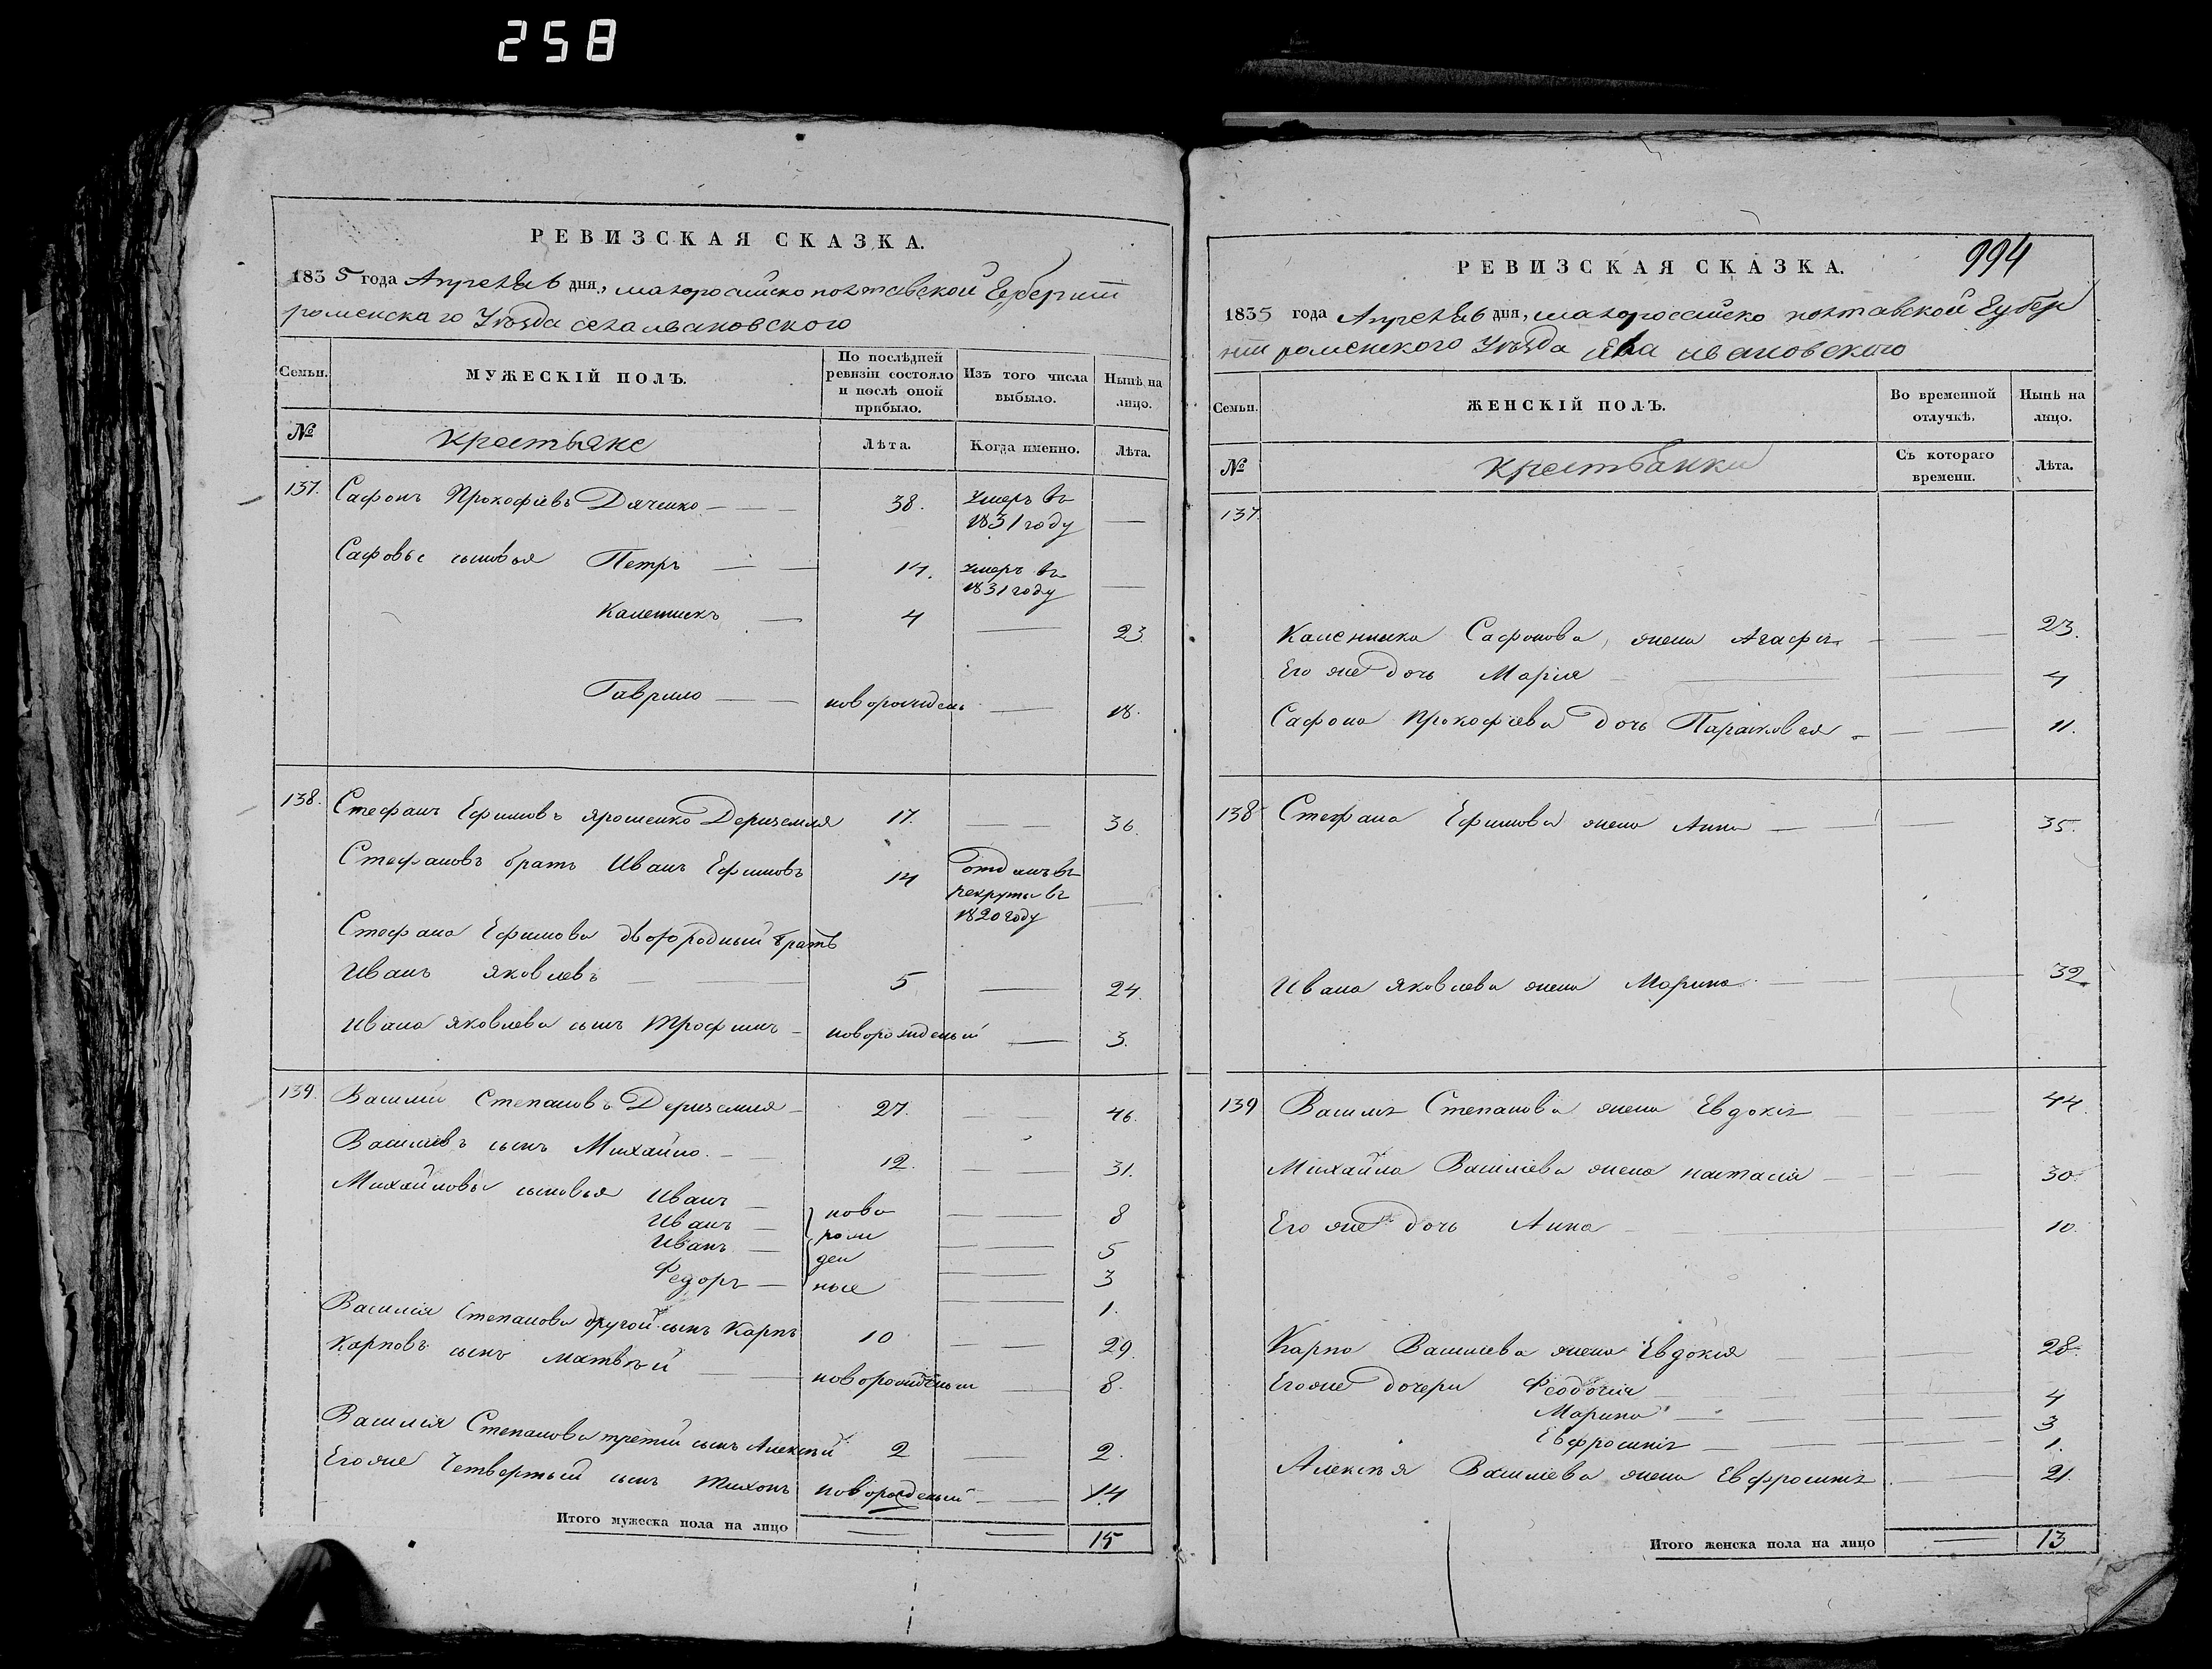 258
РЕВИЗСКАЯ СКАЗКА.
1835 года Апреля 6 дня, малороссийско полтавской Губернии
роменскаго Уъзда села ивановского
Семьи.
МУЖЕСКІЙ ПОЛЪ.
По послѣдней ревизіи состояло и послѣ оной прибыло.
Изъ того числа выбыло.
Нынѣ на лицо.
№
крестьяне
Лѣта.
Когда именно.
Лѣта.
137. Сафонъ Прокофіевъ Дяченко 38. умеръ въ 1831 году
Сафовы сыновья Петръ 14. умеръ въ 1831 году
Калениикъ 4 23.
Гаврило новорожденъ 18.
138. Стефанъ Ефимовъ ярошенко Дериземля 17. 36.
Стефановъ братъ Иванъ Ефимовъ 14 отданъ въ рекруты въ 1820 году
Стефана Ефимова двоюродный братъ
Иванъ яковлевъ 5 24.
Ивана яковлева сынъ трофимъ новорожденый 3.
139. Василий Степановъ Дериземля 27. 46.
Василіевъ сынъ Михайло. 12. 31.
Михайловы сыновья Иванъ ново 8
Иванъ рож 5
Иванъ ден 3
Федоръ ные 1.
Василія Степанова другой сынъ Карпъ 10 29.
Карповъ сынъ матвѣй новорожденый 8.
Василія Степанова третій сынъ Алексѣй 2 2.
Его же Четвертый сынъ тихонъ новорожденый 14
Итого мужеска пола на лицо 15
994
РЕВИЗСКАЯ СКАЗКА.
1835 года Апреля 6 дня, малороссийско полтавской Губер
нии роменского Уъзда села ивановского
Семьи.
ЖЕНСКІЙ ПОЛЪ.
Во временной отлучкѣ.
Нынѣ на лицо.
№
крестьянки
Съ котораго времени.
Лѣта.
137.
Каленика Сафонова, жена Агафія 23.
Его же дочь Марія 4
Сафона Прокофіева дочь Парасковея 11.
138 Стефана Ефимова жена Анна 35.
Ивана яковлева жена Марина 32
139 Василія Степанова жена Евдокія 44
Михайла Василіева жена настасія 30.
Его же дочь Анна 10.
Карпа Василіева жена Евдокия 28.
Его же дочери Феодосія 4
Марина 3
Евфросинія 1.
Алексѣя Василіева жена Евфросинія 21.
Итого женска пола на лицо 13